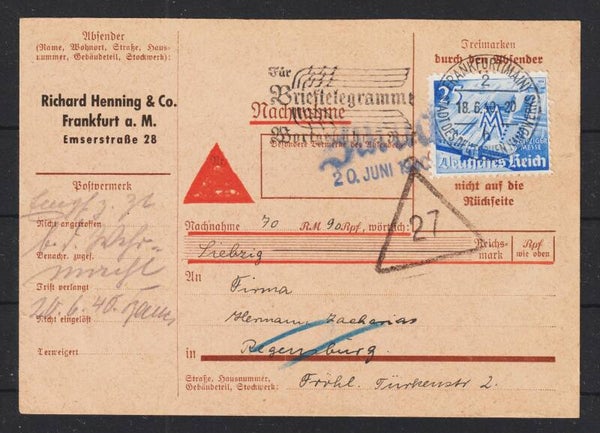 Absender
(Name, Wohnort, Straße, Haus-
nummer, Gebäudeteil, Stockwerk):
Richard Henning & Co.
Frankfurt a. M.
Emserstraße 28
Postvermerk
Nicht angetroffen
b. d. Wehr-
Benachr. zugef.
macht
Frist verlangt
20. 6. 40.
Nicht eingelöst
Verweigert
Für
Brieftelegramme
Nachnahme
Besondere Vermerke des Absenders
Zurück
20. JUNI
Freimarken
durch den Absender
FRANKFURT (MAIN)
2
18.6.40-20
b
25
MESSE
Deutsches Reich
nicht auf die
Rückseite
27
Nachnahme 70 RM 90 Rpf, wörtlich:
Siebzig
Reichs-
mark
Rpf
wie oben
An
Firma
Hermann Zacharias
in Regensburg.
Straße, Hausnummer,
Gebäudeteil, Stockwerk:
Fröhl. Türkenstr 2.